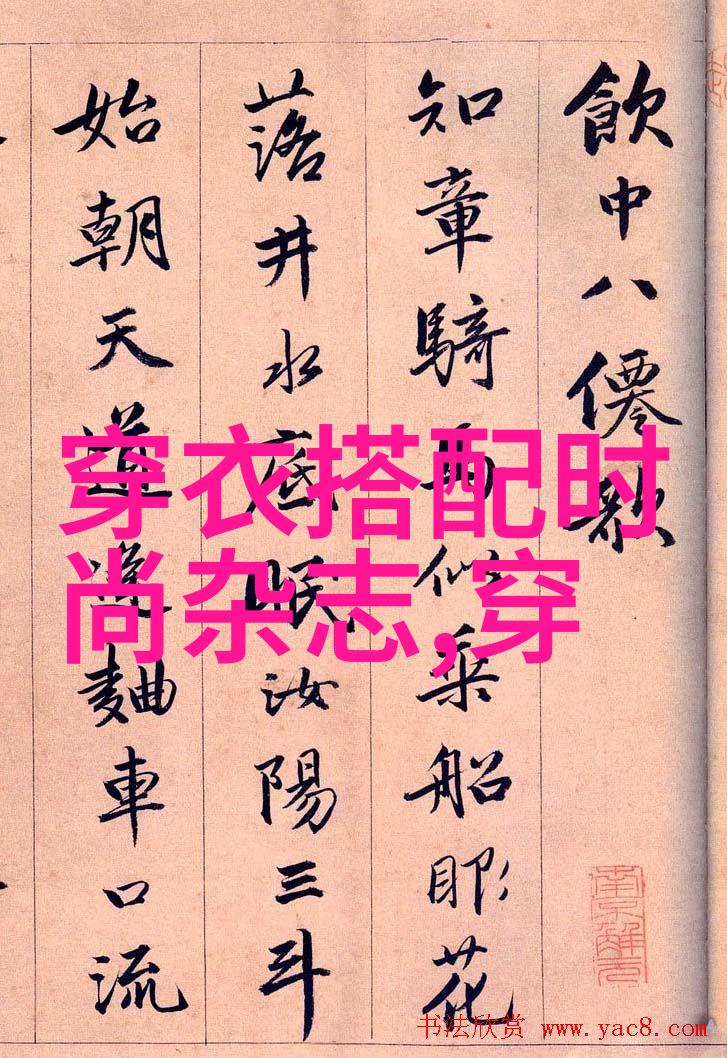 飲中八僊歌
知章騎馬似乘船眼花
落井水底眠汝陽三斗
始朝天道逢麯車口流
穿衣搭配时
尚杂志,穿
南京解元
书法欣赏 www.yac8.com